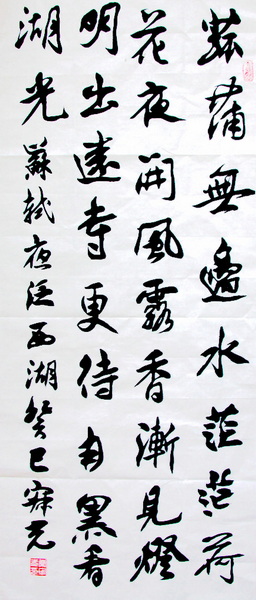 菰蒲無邊水茫茫荷
花夜開風露香漸見燈
明出遠寺更待月黑看
湖光 蘇軾夜泛西湖 癸巳